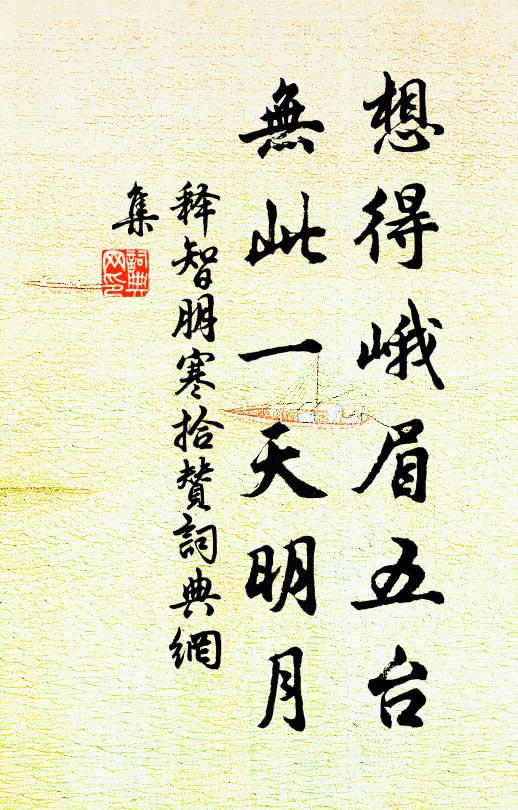 想得峨眉五台
無此一天明月
释智朋寒拾贊詞典網
集
詞典
网印